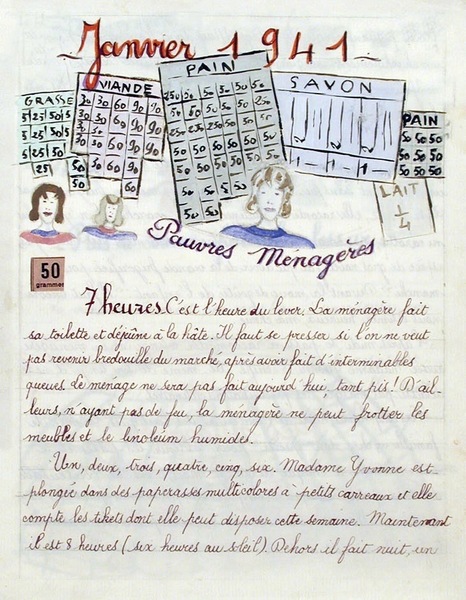 Janvier 1941
GRASSE
VIANDE
PAIN
SAVON
PAIN
LAIT
1/4
Pauvres Ménagères
50
grammes
7 heures. C'est l'heure du lever. La ménagère fait
sa toilette et déjeûne à la hâte. Il faut se presser si l'on ne veut
pas revenir bredouille du marché, après avoir fait d'interminables
queues. Le ménage ne sera pas fait aujourd'hui, tant pis! D'ail-
leurs, n'ayant pas de feu, la ménagère ne peut frotter les
meubles et le linoléum humides.
Un, deux, trois, quatre, cinq, six. Madame Yvonne est
plongée dans des paperasses multicolores à petits carreaux et elle
compte les tikets dont elle peut disposer cette semaine. Maintenant
il est 8 heures (six heures au soleil). Dehors il fait nuit, un